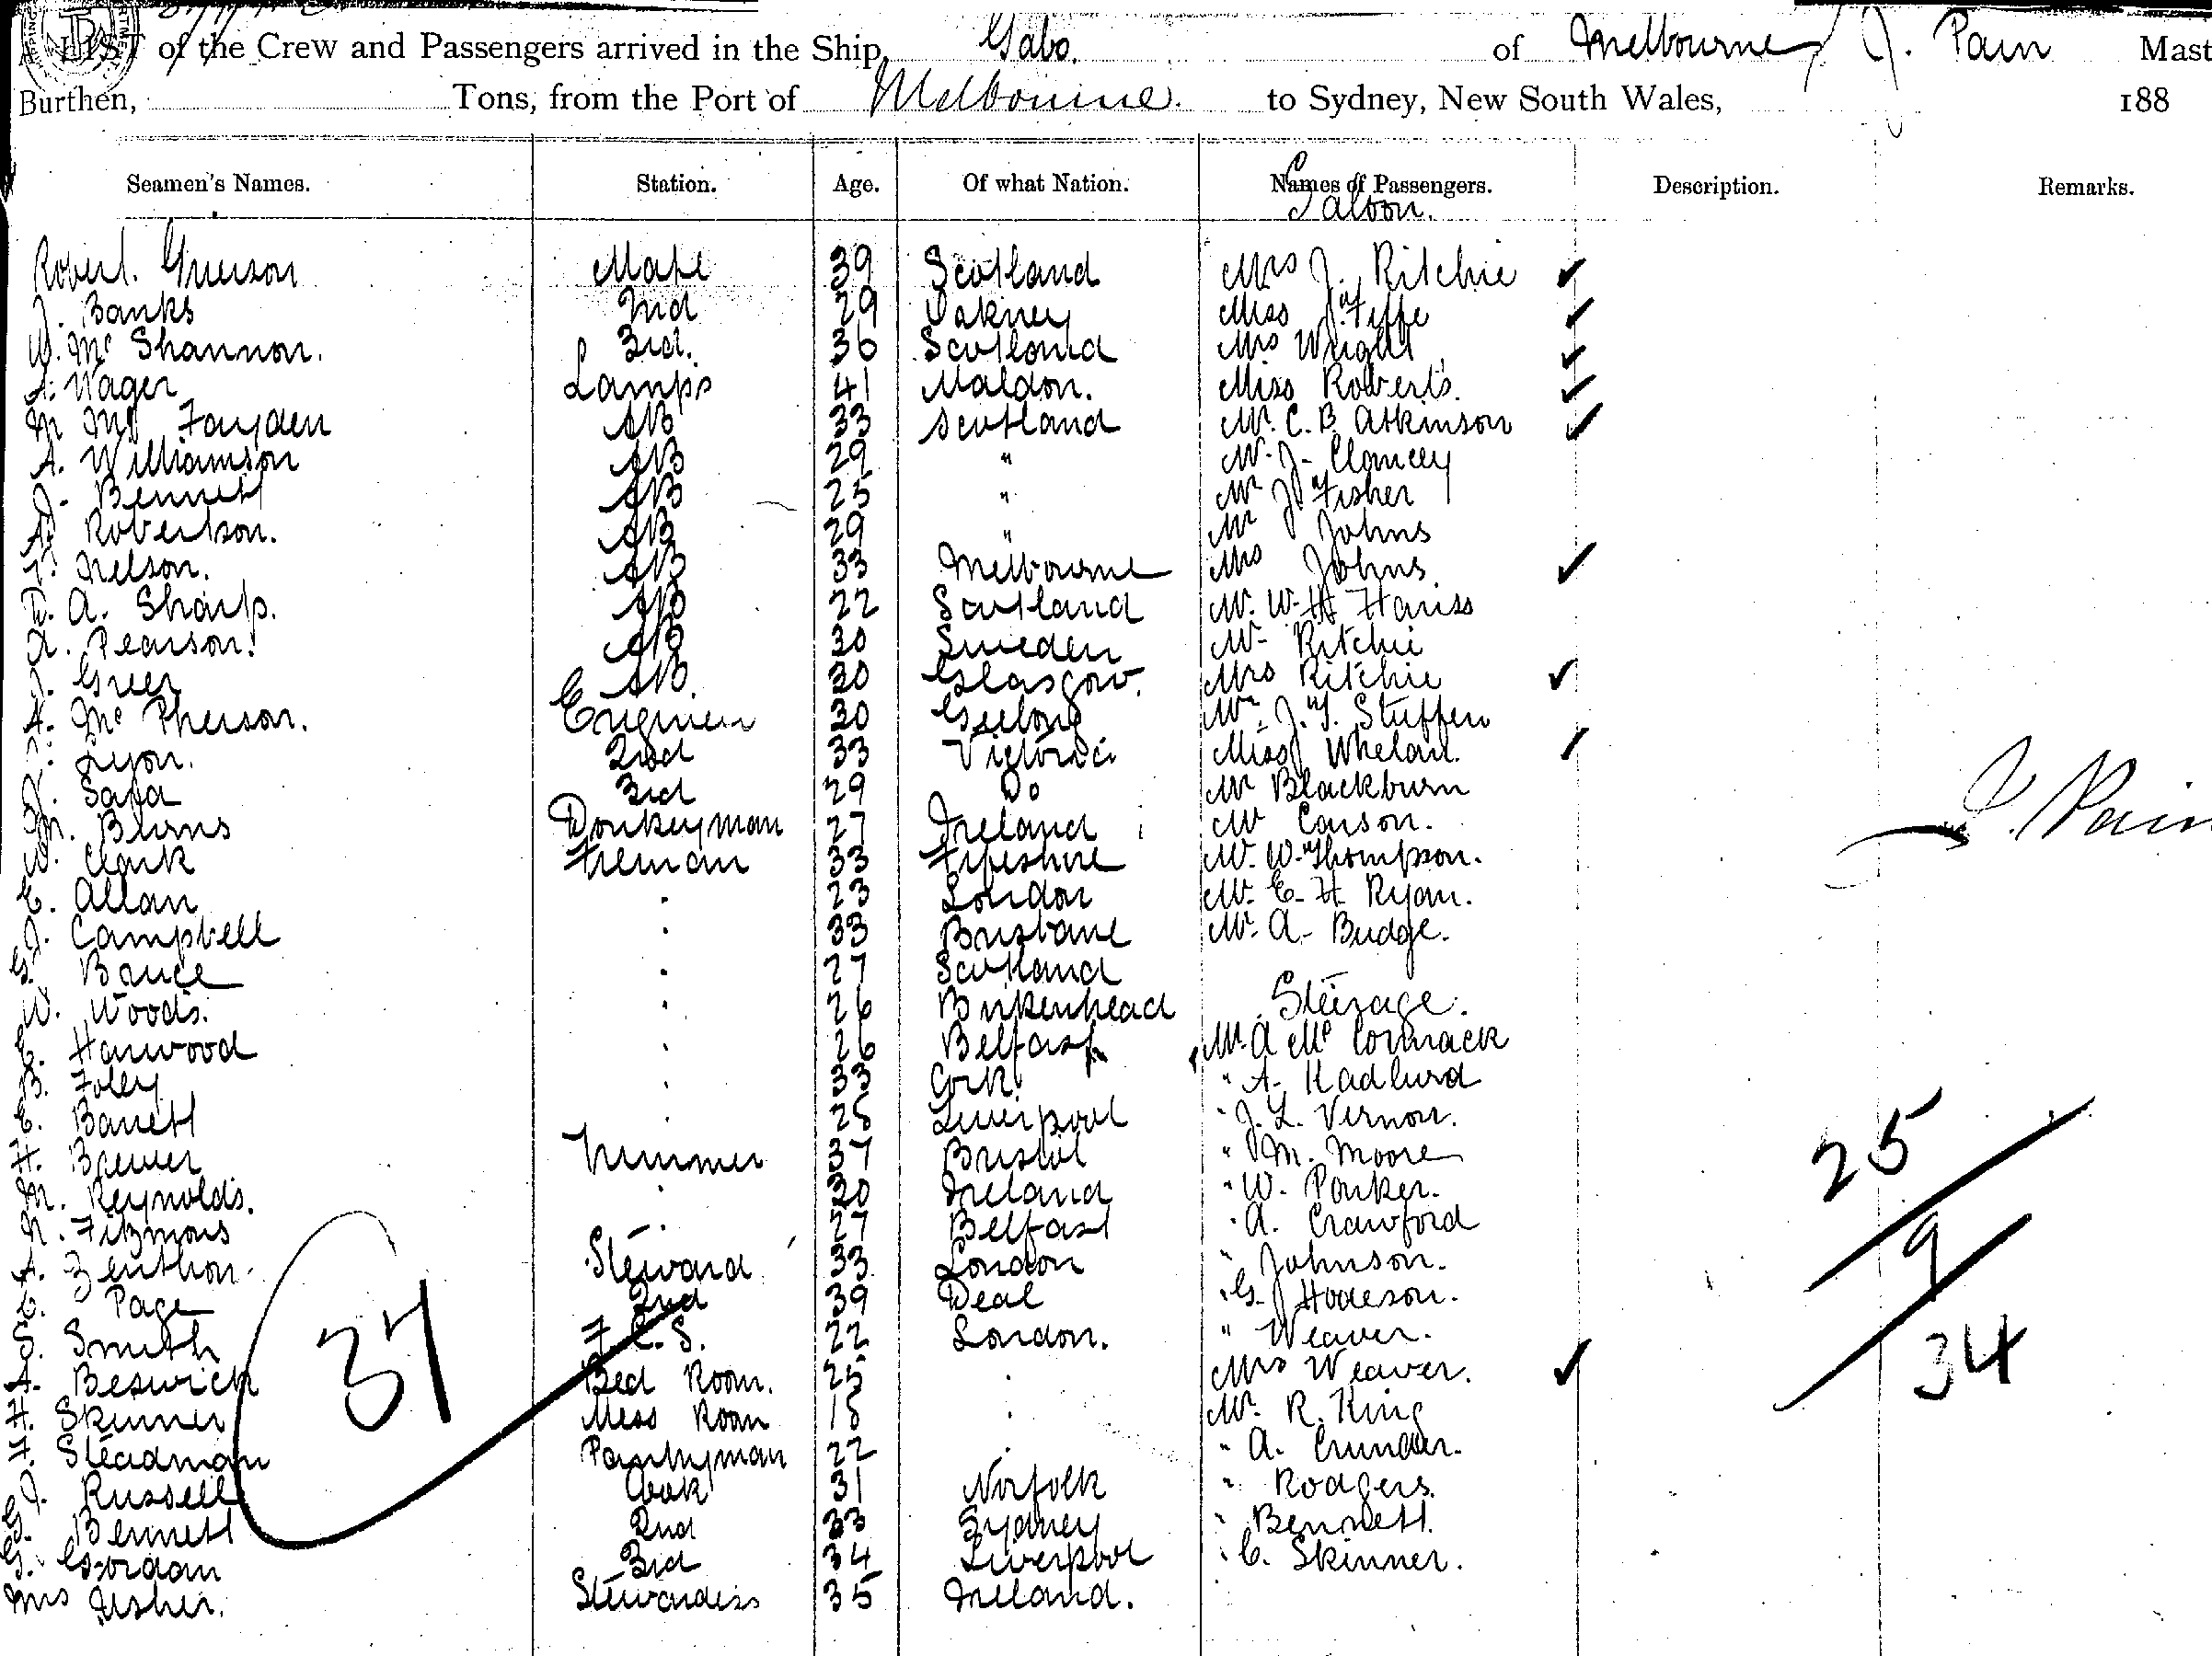 LIST of the Crew and Passengers arrived in the Ship, Gabo. of Melbourne, J. Pain Mast
Burthen, Tons, from the Port of Melbourne. to Sydney, New South Wales, 188
Seamen's Names. Station. Age. Of what Nation. Names of Passengers. Description. Remarks.
Saloon.
Robert. Grierson Mate 39 Scotland Mrs J. Ritchie ✓
J. Banks 2nd 29 Orkney Miss J. Fyffe ✓
W. Mc Shannon. 3rd. 36 Scotland Mrs Wright ✓
A. Wager Lamps 41 Maldon. Miss Roberts. ✓
M Mc Fayden AB 33 Scotland Mr. C. B. Atkinson ✓
A. Williamson AB 29 " Mr. J. Clancey
J. Bennett AB 25 " Mr J. Fisher
A. Robertson. AB 29 " Mr Johns
T. Nelson. AB 33 Melbourne Mrs Johns ✓
D. A. Sharp. AB 22 Scotland Mr. W. H. Harriss
A. Pearson. AB 30 Sweden Mr Ritchie
J. Greer AB. 30 Glasgow. Mrs Ritchie ✓
A. Mc Pherson. Engineer 30 Geelong Mr. J. T. Steffen
Lyon. 2nd 33 Victoria Miss Whelan. /
J. 3rd 29 Do Mr Blackburn
M. Burns Donkeyman 27 Ireland Mr Carson.
W. Clark Fireman 33 Fifeshire Mr. W. Thompson.
E. Allan . 23 London Mr. E. H. Ryan.
J. Campbell . 33 Brisbane Mr. A. Budge.
G. Bruce . 27 Scotland
W. Woods. . 26 Birkenhead Steerage.
E. Harwood . 26 Belfast Mr. A Mc Cormack
B. Foley . 33 Cork " A.
E. Barrett . 28 Liverpool " J. L. Vernon.
H. Brewer Trimmer 37 Bristol " M. Moore
M. Reynolds. . 30 Ireland " W. Parker.
. 27 Belfast " A. Crawford
A. Zenthon Steward 33 London " Johnson.
C. Page 2nd 39 Deal " G. Hodgson.
S. Smith F. C. S. 22 London. " Weaver.
A. Beswick Bed Room. 25 . Mrs Weaver. ✓
H. Skinner Mess Room 18 . Mr. R. King
H. Steadman Pantryman 22 . " A.
J. Russell Cook 31 Norfolk " Rodgers.
G. Bennett 2nd 33 Sydney " Bennett.
G. Gordon 3rd 34 Liverpool " C. Skinner.
Mrs Usher. Stewardess 35 Ireland.
37
J. Pain
25
9
34